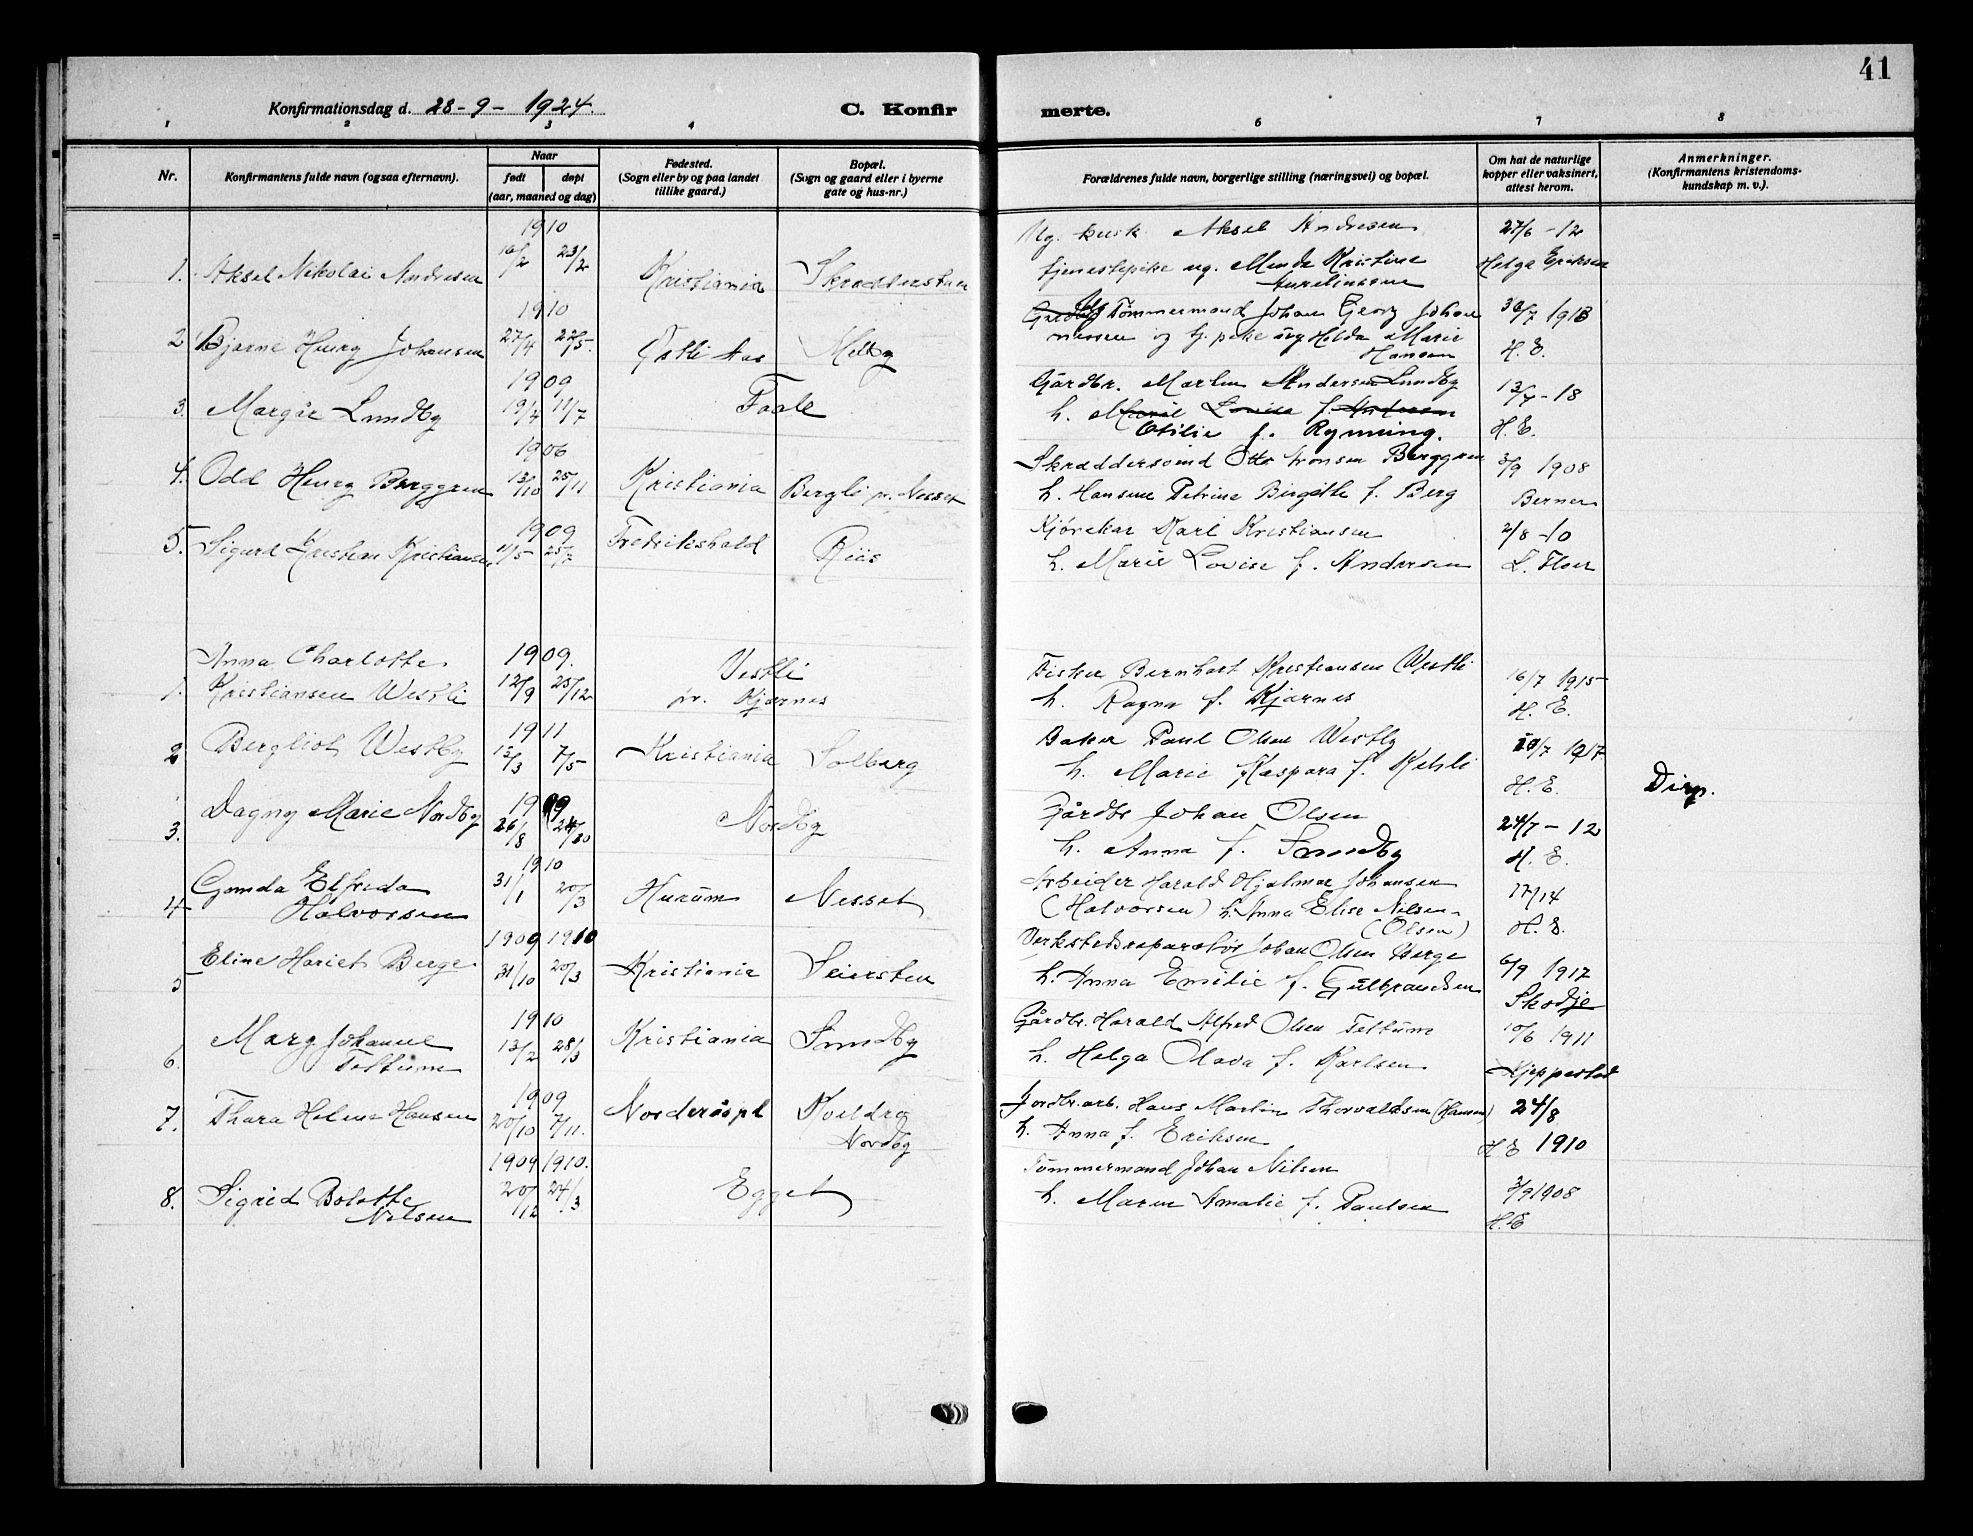 41
Konfirmationsdag d. 28-9-1924.
C. Konfirmerte.
1 2 3 4 6 7 8
Nr.
Konfirmantens fulde navn (ogsaa efternavn).
Naar
født døpt
(aar, maaned og dag)
Fødested.
(Sogn eller by og paa landet
tillike gaard.)
Bopæl.
(Sogn og gaard eller i byerne
gate og hus-nr.)
Forældrenes fulde navn, borgerlige stilling (næringsvei) og bopæl.
Om hat de naturlige
kopper eller vaksinert,
attest herom.
Anmerkninger.
(Konfirmantens kristendoms-
kundskap m. v.).
1910
Ug. kusk Aksel Andresen 27/6 -12
1. Aksel Nikolai Andresen 16/2 23/2 Kristiania
tjenestepike ug. Minda Kristine Helga Eriksen
1910
Tömmermand Johan Georg Johan
2 Bjarne Henry Johansen 27/4 22/5. Melby
nessen og tj. pike ug Hilda Marie
Hansen H. E.
1909
Gårdbr. Martin Andersen Lundby 13/7-18
3. Margår Lundby 19/4 11/7 Faale
h. Marie Louise f. Andersen
Otilie f. Rynning. H. E.
1906
Skræddersvend Otto Berggren 3/9 1908
4. Odd Henry Berggren 13/10 25/11 Kristiania Bergli pr. Nesset
h. Hansine Petrine Birgitte f. Berg Berner
1909
Kjørekar Karl Kristiansen 2/8-10
5. Sigurd Kristian Kristiansen 11/5 25/7 Fredrikshald Riis
h. Marie Lovise f. Andersen
Anna Charlotte 1909. Vestli
Fisker Bernhart Kristiansen Westli 16/7 1915
1. Kristiansen Westli 12/9 25/12 pr. Kjærnes
h. Ragna f. Kjærnes H. E.
1911
Baker Paul Olsen Westby
2 Bergliot Westby 13/3 7/5 Kristiania Solberg
h. Marie Kaspara f. H. E.
3. Dagny Marie Nordby 1909 26/8 24/10 Nordby
Gårdbr Johan Olsen 24/7-12
h. Anna f. Sundby H. E.
1910
4 Gunda Elfrida 31/1 20/3 Hurum Nesset
Halvorsen
Arbeider Harald Hjalmar Johansen
(Halvorsen) h. Anna Elise Nilsen
(Olsen) H. E.
1909 1910
5 Eline Hariet Berge 31/10 20/3 Kristiania Seiersten
Verkstedsreparatør Johan Olsen Berge 6/9 1917
h. Anna Emilie f. Gulbrandsen Skodje
1910
6. Mary Johanne 13/2 28/3 Kristiania Sundby
Feltum
Gårdbr. Harald Alfred Olsen Feltum 10/6 1911
h. Helga Olava f. Karlsen Kjeppestad
1909
7. Thara Helene Hansen 20/10 7/11. Norderåspl
Nordby
Jordbr.arb. Hans Martin Thorvaldsen (Hansen) 24/8
h. Anna f. Eriksen H E 1910
1909 1910.
8. Sigrid Bolette 20/12 24/3 Egget
Nilsen
Tömmermand Johan Nilsen
h. Maren Amalie f. Paulsen 3/9 1908
H. E